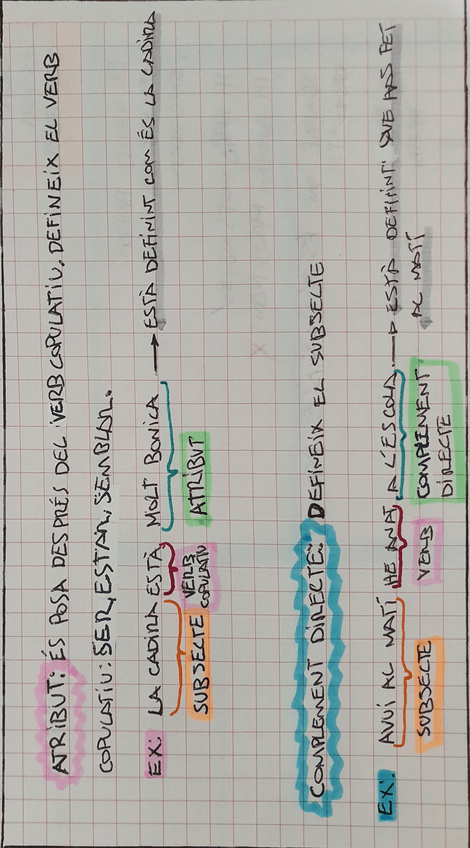 ATRIBUT: ÉS POSA DESPRÉS DEL VERB COPULATIU, DEFINEIX EL VERB
COPULATIU: SER, ESTAR, SEMBLAR.
EX: LA CADIRA ESTÀ MOLT BONICA → ESTÀ DEFININT COM ÉS LA CADIRA
SUBSECTE VERB COPULATIU ATRIBUT
COMPLEMENT DIRECTE: DEFINEIX EL SUBSECTE
EX: AVUI AL MATÍ HE ANAT A L'ESCOLA. → ESTÀ DEFININT QUE HAS FET
AL MATÍ
SUBSECTE VERB COMPLEMENT
DIRECTE